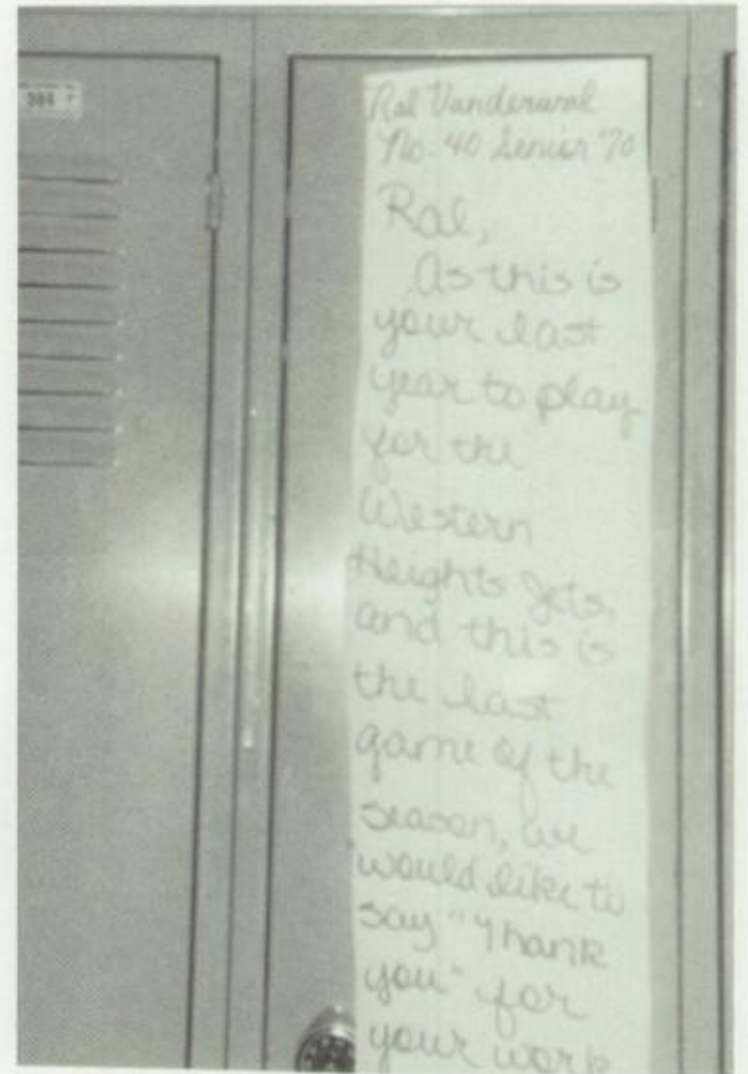 304
Ral Vanderwal
No. 40 Senior '70
Ral,
As this is
your last
year to play
for the
Western
Heights Jets,
and this is
the last
game of the
season, we
would like to
say "Thank
you" for
your work